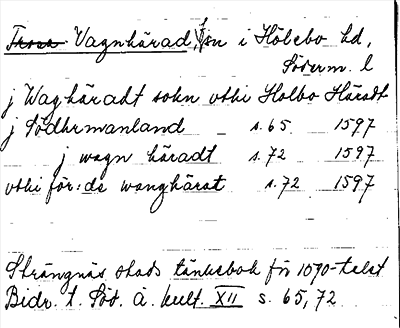 Trosa Vagnhärad, sn i Hölebo hd,
Söderm. l
j Waghäradt sokn vthi Holbo Häradt
j Södhrmanland s. 65 1597
j wagn häradt s. 72 1597
vthi för:de wanghärat s. 72 1597
Strängnäs stads tänkebok för 1590-talet
Bidr. t. Söd. ä. kult. XII s. 65, 72